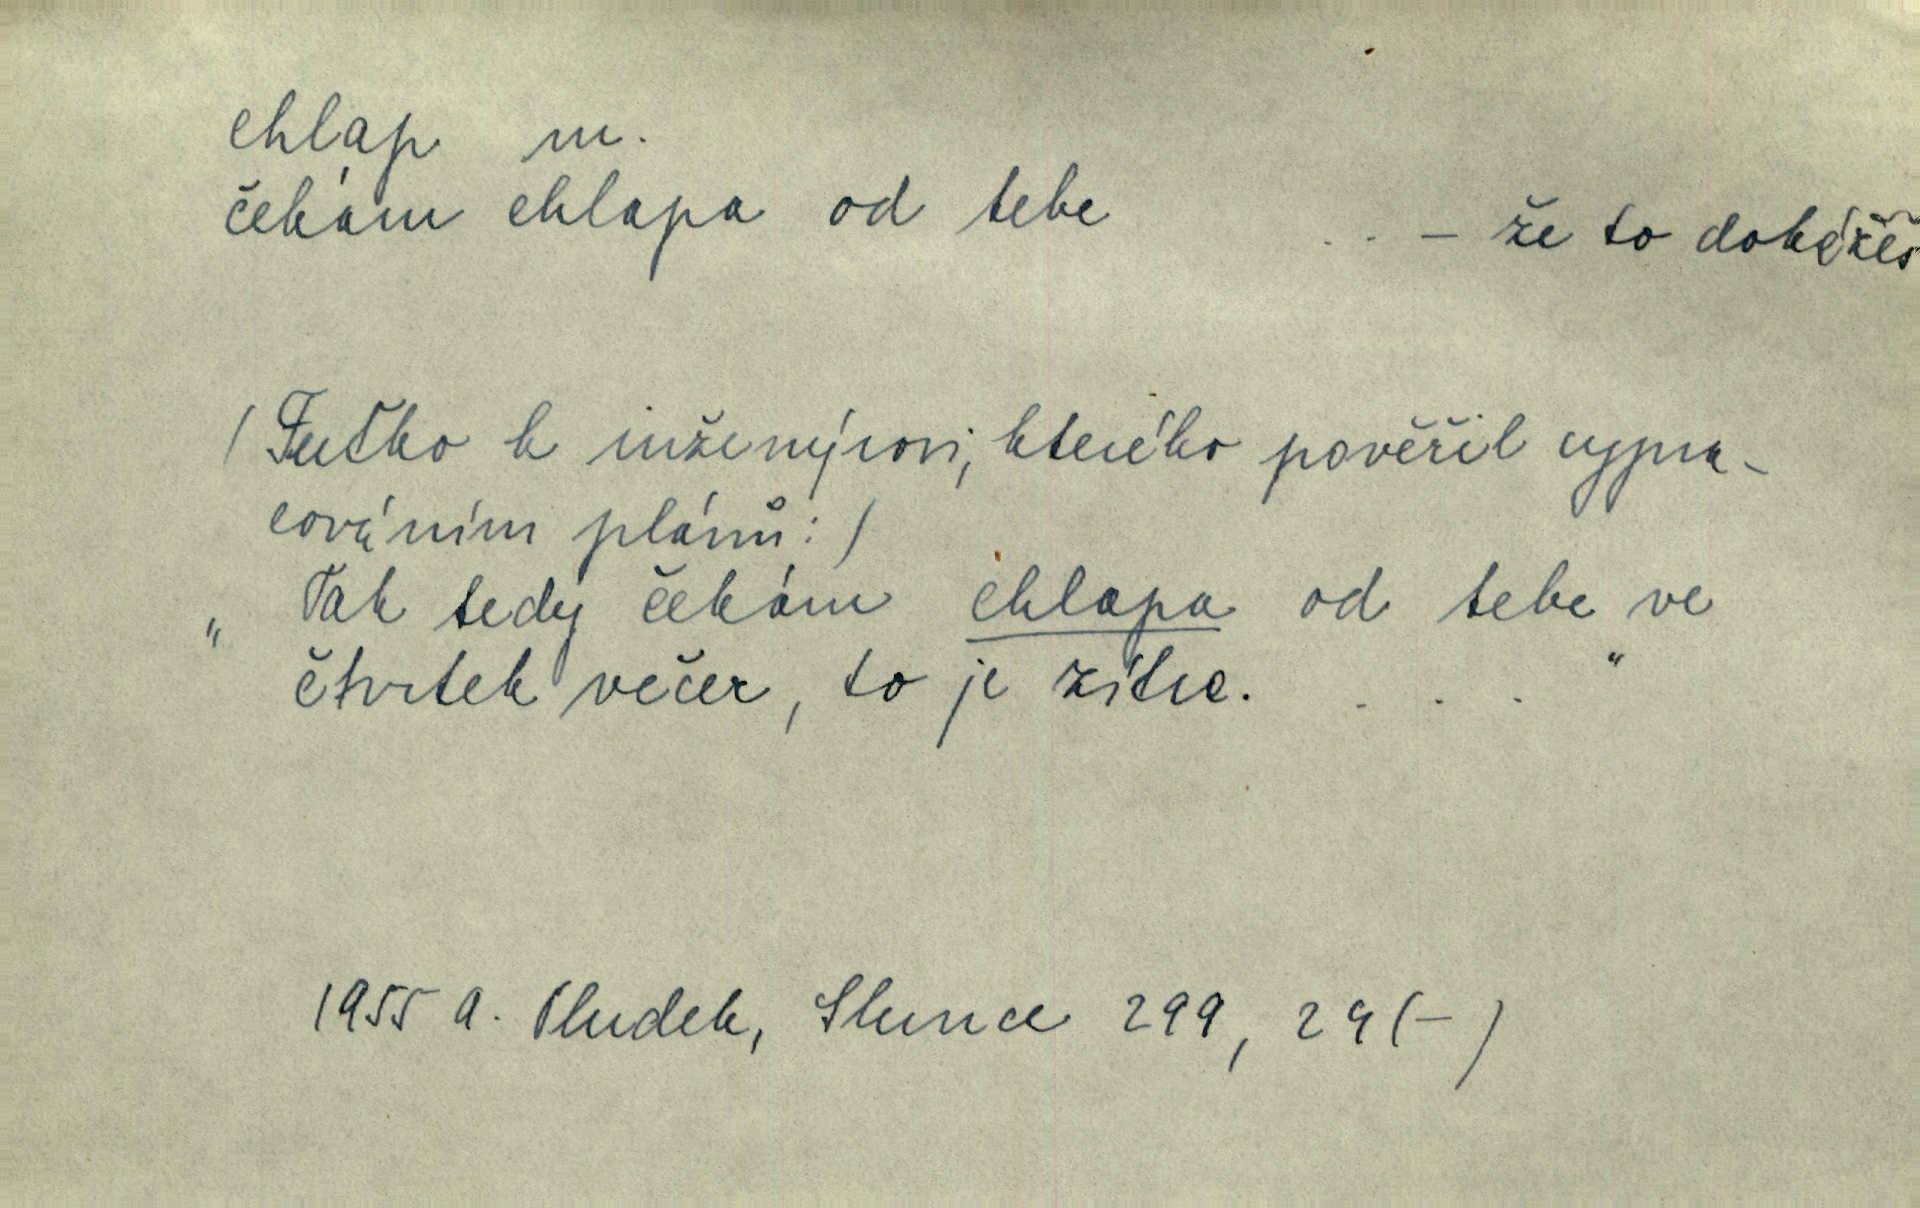 chlap m.
čekám chlapa od tebe .. – že to dokážeš
/ Fučko k inženýrovi, kterého pověřil vypra-
cováním plánů: /
„Tak tedy čekám chlapa od tebe ve
čtvrtek večer, to je zítra. . . . “
1955 A. Pludek, Slunce 299, 29 (–)